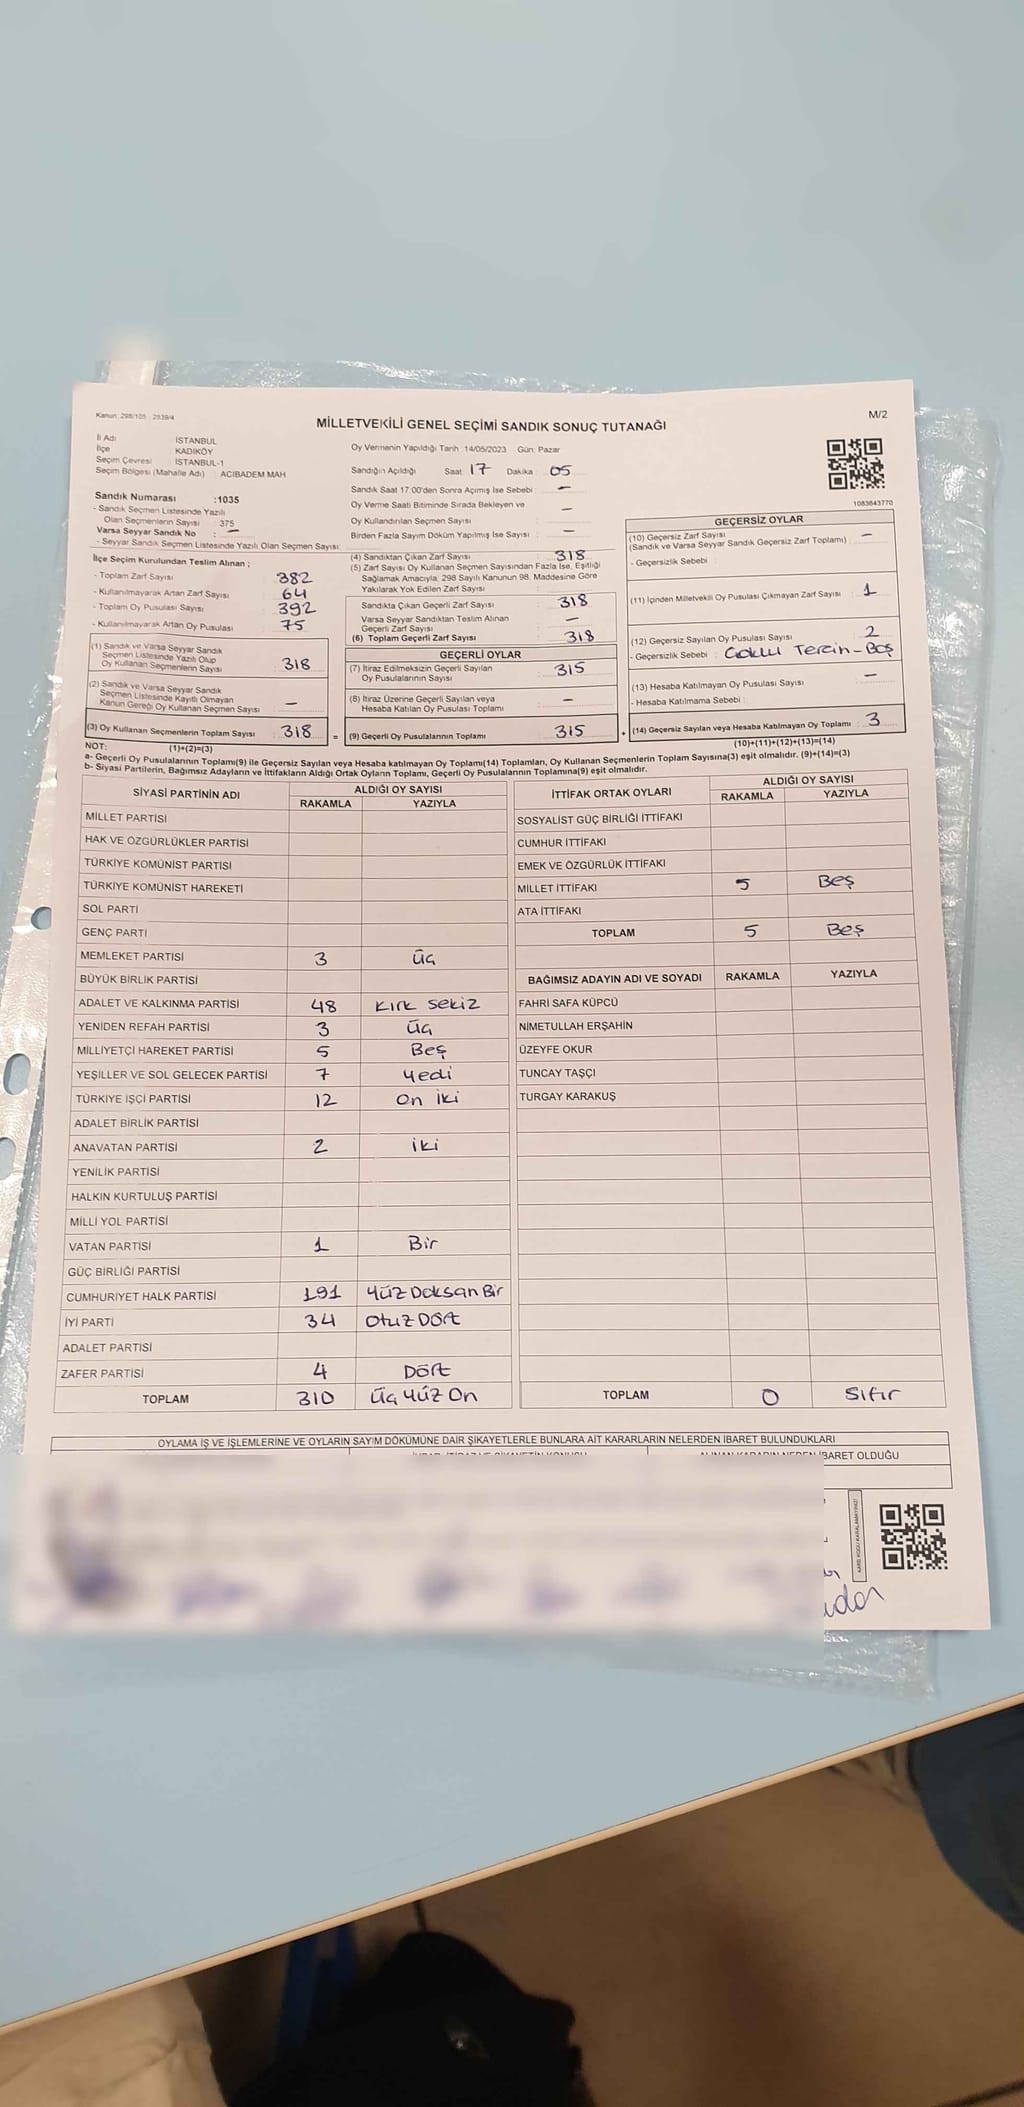 Kanun: 298/105 2839/4
MİLLETVEKİLİ GENEL SEÇİMİ SANDIK SONUÇ TUTANAĞI
M/2
İl Adı : İSTANBUL
İlçe : KADIKÖY
Seçim Çevresi : İSTANBUL-1
Seçim Bölgesi (Mahalle Adı) : ACIBADEM MAH
Sandık Numarası :1035
- Sandık Seçmen Listesinde Yazılı
Olan Seçmenlerin Sayısı : 375
Varsa Seyyar Sandık No : -
- Seyyar Sandık Seçmen Listesinde Yazılı Olan Seçmen Sayısı:
Oy Vermenin Yapıldığı Tarih 14/05/2023 Gün: Pazar
Sandığın Açıldığı Saat: 17 Dakika : 05
Sandık Saat 17:00'den Sonra Açımış İse Sebebi : -
Oy Verme Saati Bitiminde Sırada Bekleyen ve -
Oy Kullandırılan Seçmen Sayısı
Birden Fazla Sayım Döküm Yapılmış İse Sayısı : -
1083643770
İlçe Seçim Kurulundan Teslim Alınan ;
- Toplam Zarf Sayısı : 382
- Kullanılmayarak Artan Zarf Sayısı : 64
- Toplam Oy Pusulası Sayısı : 392
- Kullanılmayarak Artan Oy Pusulası : 75
(1) Sandık ve Varsa Seyyar Sandık
Seçmen Listesinde Yazılı Olup
Oy Kullanan Seçmenlerin Sayısı : 318
(2) Sandık ve Varsa Seyyar Sandık
Seçmen Listesinde Kayıtlı Olmayan
Kanun Gereği Oy Kullanan Seçmen Sayısı : -
(3) Oy Kullanan Seçmenlerin Toplam Sayısı : 318 =
(4) Sandıktan Çıkan Zarf Sayısı : 318
(5) Zarf Sayısı Oy Kullanan Seçmen Sayısından Fazla İse, Eşitliği
Sağlamak Amacıyla, 298 Sayılı Kanunun 98. Maddesine Göre
Yakılarak Yok Edilen Zarf Sayısı :
Sandıkta Çıkan Geçerli Zarf Sayısı : 318
Varsa Seyyar Sandıktan Teslim Alınan
Geçerli Zarf Sayısı : -
(6) Toplam Geçerli Zarf Sayısı : 318
GEÇERLİ OYLAR
(7) İtiraz Edilmeksizin Geçerli Sayılan
Oy Pusulalarının Sayısı : 315
(8) İtiraz Üzerine Geçerli Sayılan veya
Hesaba Katılan Oy Pusulası Toplamı : -
(9) Geçerli Oy Pusulalarının Toplamı : 315 +
GEÇERSİZ OYLAR
(10) Geçersiz Zarf Sayısı : -
(Sandık ve Varsa Seyyar Sandık Geçersiz Zarf Toplamı)
- Geçersizlik Sebebi :
(11) İçinden Milletvekili Oy Pusulası Çıkmayan Zarf Sayısı : 1
(12) Geçersiz Sayılan Oy Pusulası Sayısı : 2
- Geçersizlik Sebebi : Çoklu Tercih - Boş
(13) Hesaba Katılmayan Oy Pusulası Sayısı : -
- Hesaba Katılmama Sebebi :
(14) Geçersiz Sayılan veya Hesaba Katılmayan Oy Toplamı : 3
NOT: (1)+(2)=(3) (10)+(11)+(12)+(13)=(14)
a- Geçerli Oy Pusulalarının Toplamı(9) ile Geçersiz Sayılan veya Hesaba katılmayan Oy Toplamı(14) Toplamları, Oy Kullanan Seçmenlerin Toplam Sayısına(3) eşit olmalıdır. (9)+(14)=(3)
b- Siyasi Partilerin, Bağımsız Adayların ve İttifakların Aldığı Ortak Oyların Toplamı, Geçerli Oy Pusulalarının Toplamına(9) eşit olmalıdır.
SİYASİ PARTİNİN ADI ALDIĞI OY SAYISI
RAKAMLA YAZIYLA
MİLLET PARTİSİ
HAK VE ÖZGÜRLÜKLER PARTİSİ
TÜRKİYE KOMÜNİST PARTİSİ
TÜRKİYE KOMÜNİST HAREKETİ
SOL PARTİ
GENÇ PARTİ
MEMLEKET PARTİSİ 3 Üç
BÜYÜK BİRLİK PARTİSİ
ADALET VE KALKINMA PARTİSİ 48 Kırk sekiz
YENİDEN REFAH PARTİSİ 3 Üç
MİLLİYETÇİ HAREKET PARTİSİ 5 Beş
YEŞİLLER VE SOL GELECEK PARTİSİ 7 Yedi
TÜRKİYE İŞÇİ PARTİSİ 12 On iki
ADALET BİRLİK PARTİSİ
ANAVATAN PARTİSİ 2 İki
YENİLİK PARTİSİ
HALKIN KURTULUŞ PARTİSİ
MİLLİ YOL PARTİSİ
VATAN PARTİSİ 1 Bir
GÜÇ BİRLİĞİ PARTİSİ
CUMHURİYET HALK PARTİSİ 191 Yüz Doksan Bir
İYİ PARTİ 34 Otuz Dört
ADALET PARTİSİ
ZAFER PARTİSİ 4 Dört
TOPLAM 310 Üç Yüz On
İTTİFAK ORTAK OYLARI ALDIĞI OY SAYISI
RAKAMLA YAZIYLA
SOSYALİST GÜÇ BİRLİĞİ İTTİFAKI
CUMHUR İTTİFAKI
EMEK VE ÖZGÜRLÜK İTTİFAKI
MİLLET İTTİFAKI 5 Beş
ATA İTTİFAKI
TOPLAM 5 Beş
BAĞIMSIZ ADAYIN ADI VE SOYADI RAKAMLA YAZIYLA
FAHRİ SAFA KÜPCÜ
NİMETULLAH ERŞAHİN
ÜZEYFE OKUR
TUNCAY TAŞÇI
TURGAY KARAKUŞ
TOPLAM 0 Sıfır
OYLAMA İŞ VE İŞLEMLERİNE VE OYLARIN SAYIM DÖKÜMÜNE DAİR ŞİKAYETLERLE BUNLARA AİT KARARLARIN NELERDEN İBARET BULUNDUKLARI
İBARET OLDUĞU